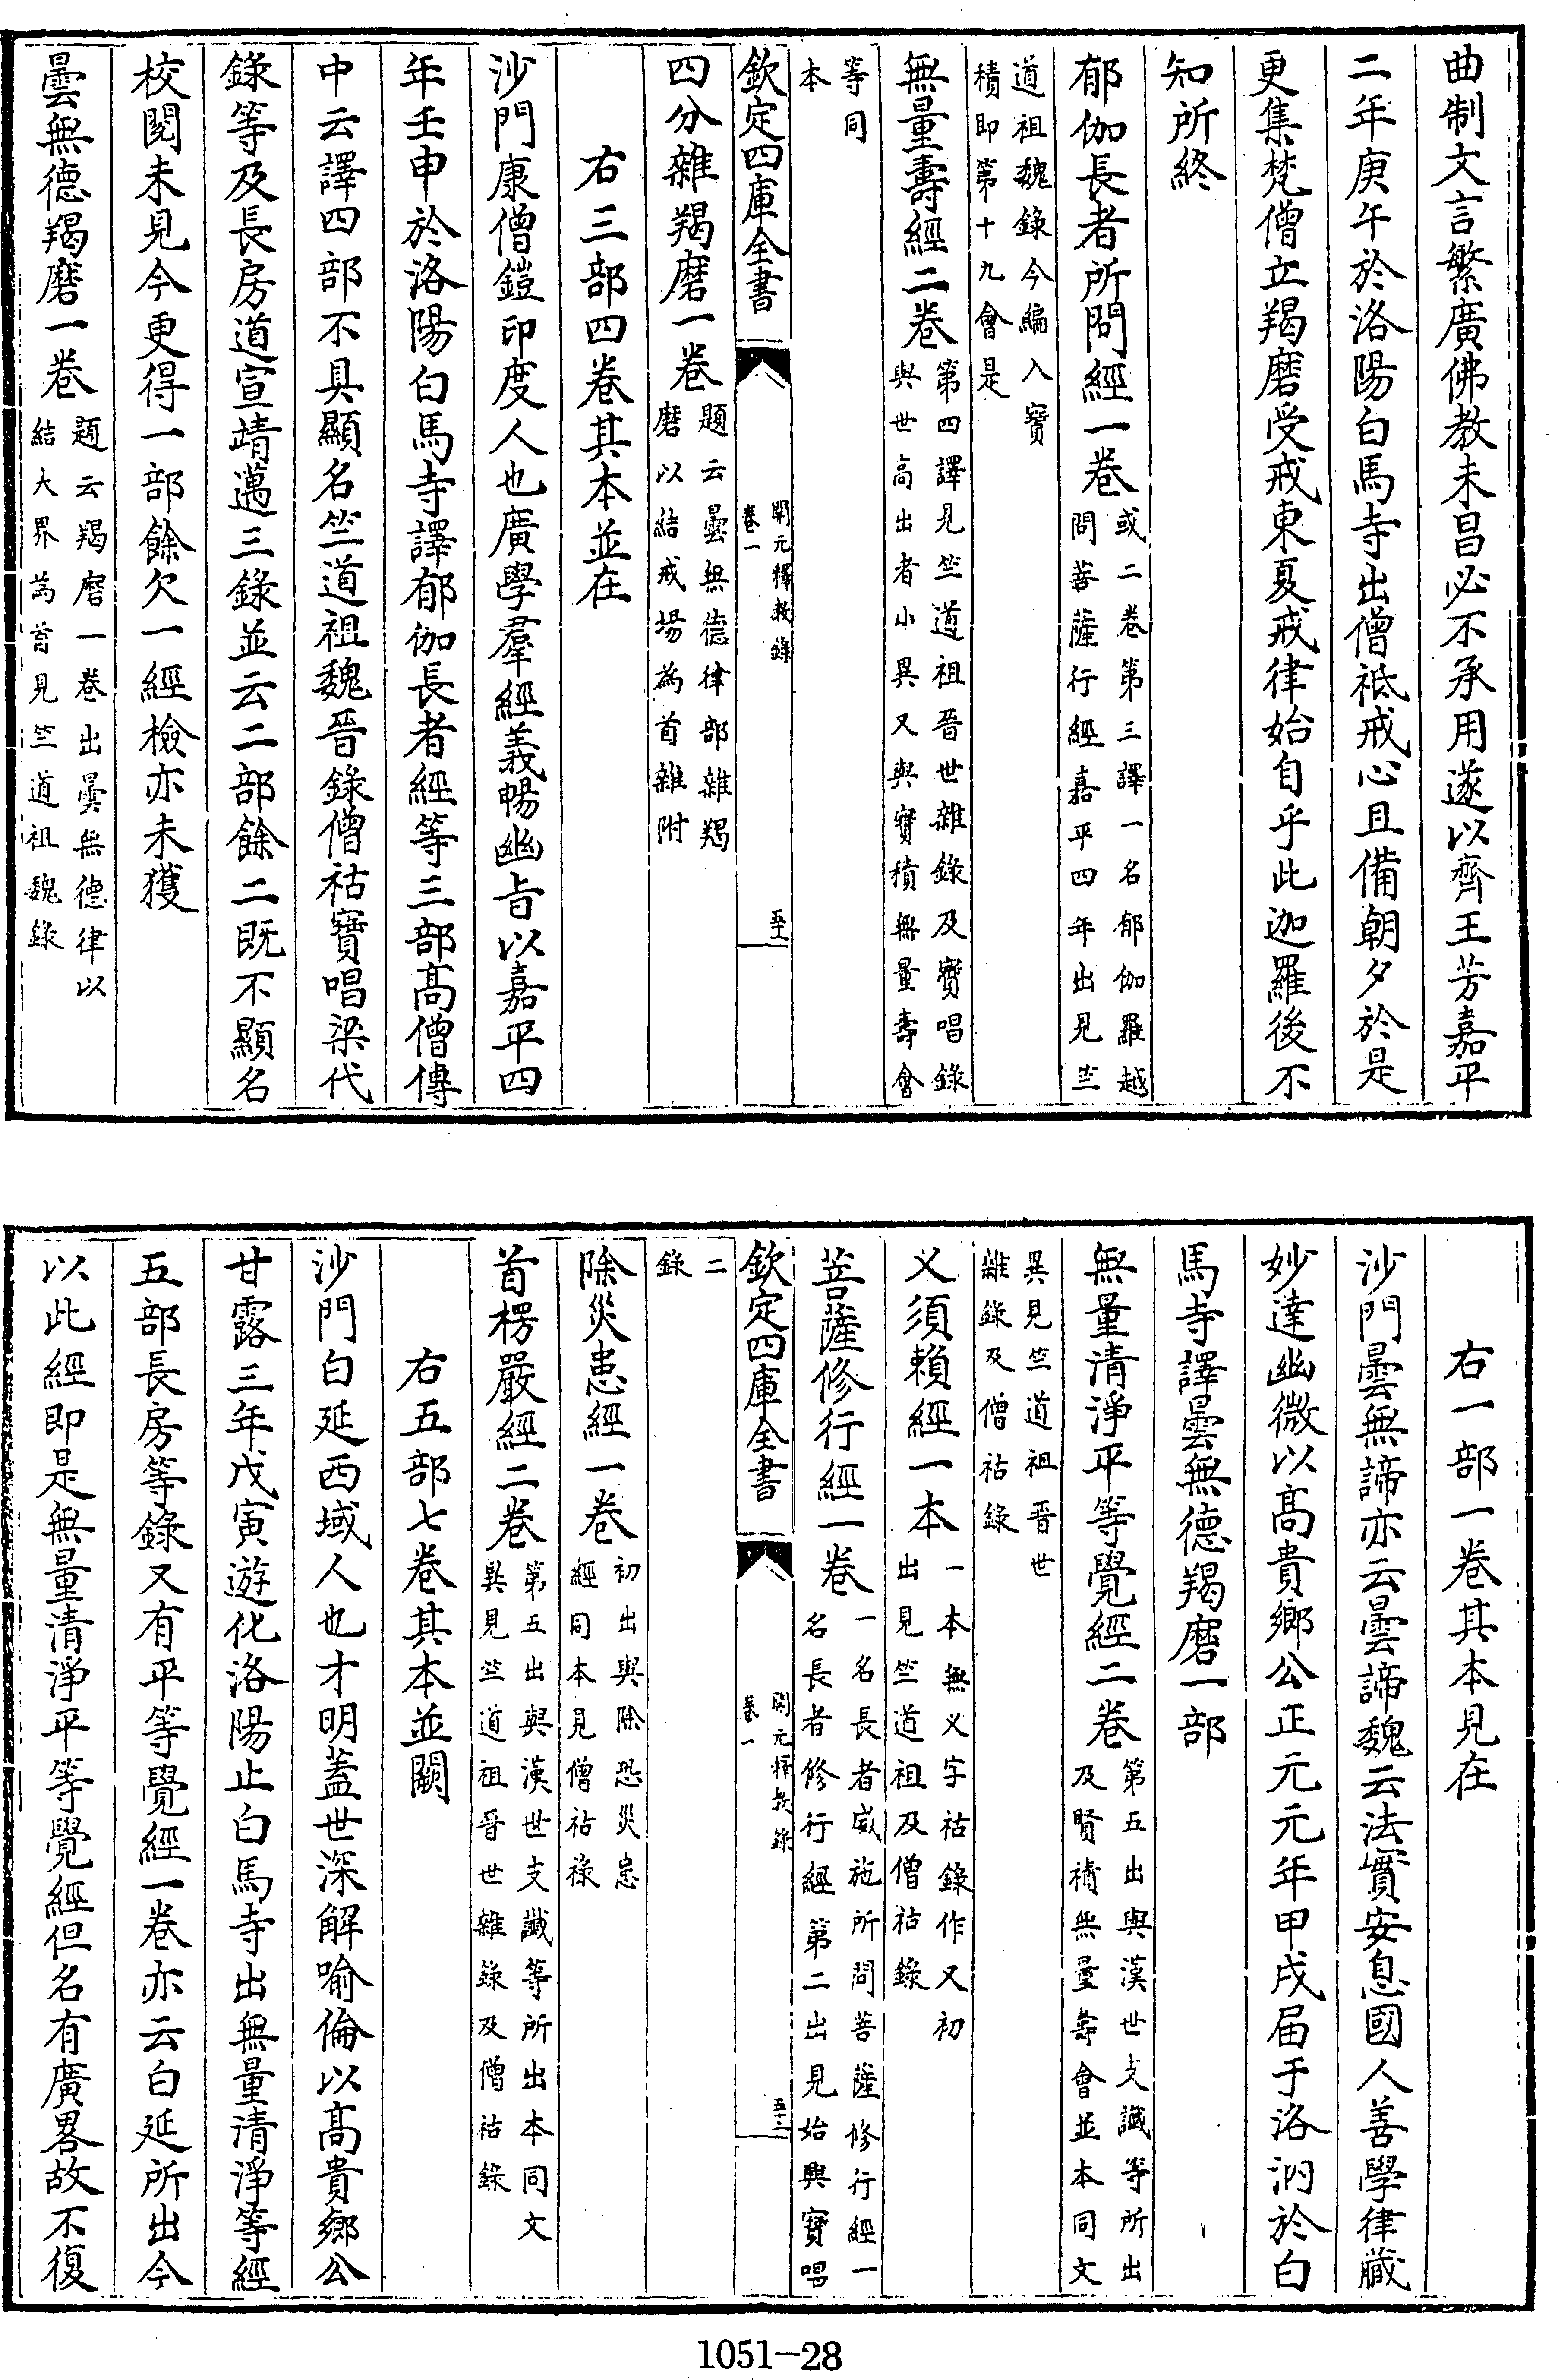 曲制文言繁廣佛教未昌必不承用遂以齊王芳嘉平
二年庚午於洛陽白馬寺出僧祗戒心且備朝夕於是
更集梵僧立羯磨受戒東夏戒律始自乎此迦羅後不
知所終
郁伽長者所問經一卷或二卷第三譯一名郁伽羅越
問菩薩行經嘉平四年出見竺
道祖魏錄今編入寶
積即第十九會是
無量壽經二卷第四譯見竺道祖晉世雜錄及寶唱錄
與世高出者小異又與寶積無量壽會
等同
本
欽定四庫全書
開元釋教錄
卷一
五十一
四分雜羯磨一卷題云曇無德律部雜羯
磨以結戒場為首雜附
右三部四卷其本並在
沙門康僧鎧印度人也廣學羣經義暢幽旨以嘉平四
年壬申於洛陽白馬寺譯郁伽長者經等三部高僧傳
中云譯四部不具顯名竺道祖魏晉錄僧祐寶唱梁代
錄等及長房道宣靖邁三錄並云二部餘二既不顯名
校閱未見今更得一部餘欠一經檢亦未獲
曇無德羯磨一卷題云羯磨一卷出曇無德律以
結大界為首見竺道祖魏錄
右一部一卷其本見在
沙門曇無諦亦云曇諦魏云法實安息國人善學律臧
妙達幽微以高貴鄉公正元元年甲戌届于洛汭於白
馬寺譯曇無德羯磨一部
無量清淨平等覺經二卷第五出與漢世支讖等所出
及賢積無量壽會並本同文
異見竺道祖晉世
雜錄及僧祐錄
义須賴經一本一本無义字祐錄作又初
出見竺道祖及僧祐錄
菩薩修行經一卷一名長者威施所問菩薩修行經一
名長者修行經第二出見始興寶唱
欽定四庫全書
開元釋教錄
卷一
五十二
二
錄
除災患經一卷初出與除恐災患
經同本見僧祐祿
首楞嚴經二卷第五出與漢世支讖等所出本同文
異見竺道祖晉世雜錄及僧祐錄
右五部七卷其本並闕
沙門白延西域人也才明蓋世深解喻倫以高貴鄉公
甘露三年戊寅遊化洛陽止白馬寺出無量清淨等經
五部長房等錄又有平等覺經一卷亦云白延所出今
以此經即是無量清淨平等覺經但名有廣畧故不復
1051-28